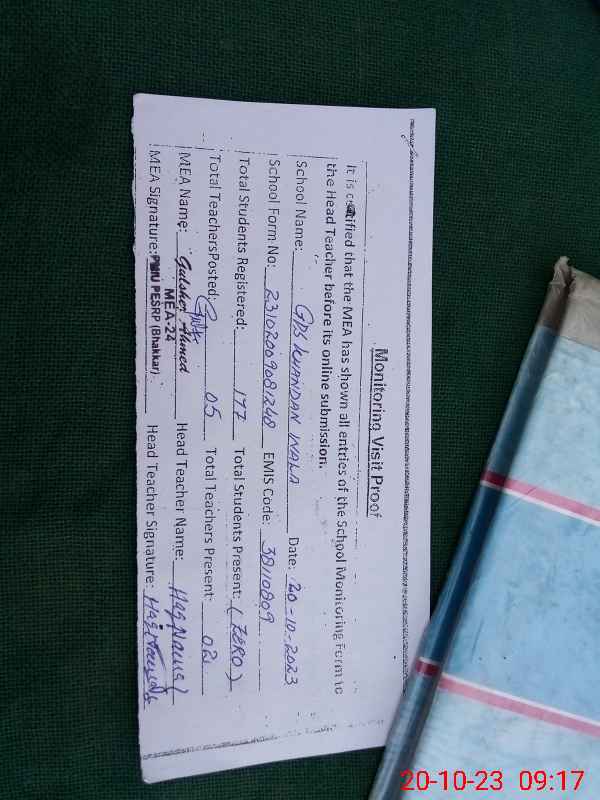 Monitoring Visit Proof
It is certified that the MEA has shown all entries of the School Monitoring Form to
the Head Teacher before its online submission.
School Name: GPS KHANDAN WALA Date: 20-10-2023
School Form No: 23102009081248 EMIS Code: 38110809
Total Students Registered: 177 Total Students Present: (ZERO)
Total TeachersPosted: 05 Total Teachers Present: 02
MEA Name: Gulsher Ahmed Head Teacher Name: Haq Nawaz
MEA-24
MEA Signature: PMIU PESRP (Bhakkar) Head Teacher Signature: Haq Nawaz
20-10-23 09:17